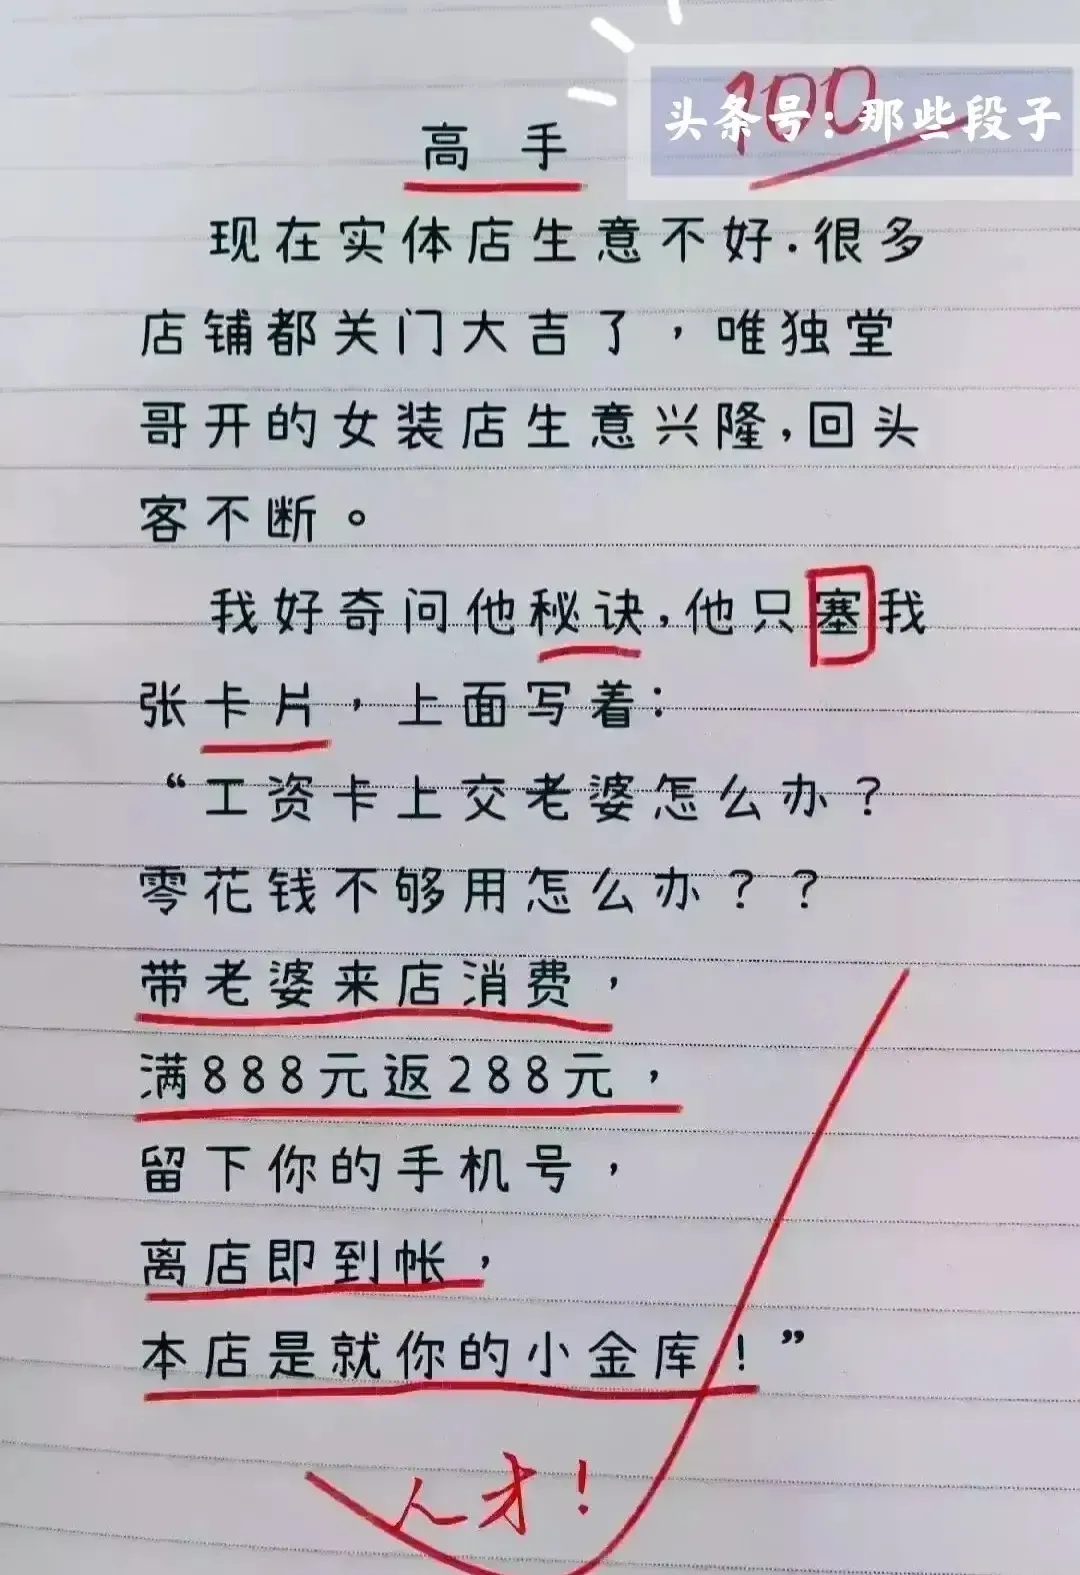 100
头条号:那些段子
高手
现在实体店生意不好.很多
店铺都关门大吉了，唯独堂
哥开的女装店生意兴隆,回头
客不断。
我好奇问他秘诀,他只塞我
张卡片，上面写着:
“工资卡上交老婆怎么办?
零花钱不够用怎么办??
带老婆来店消费，
满888元返288元，
留下你的手机号，
离店即到帐，
本店是就你的小金库!”
人才!